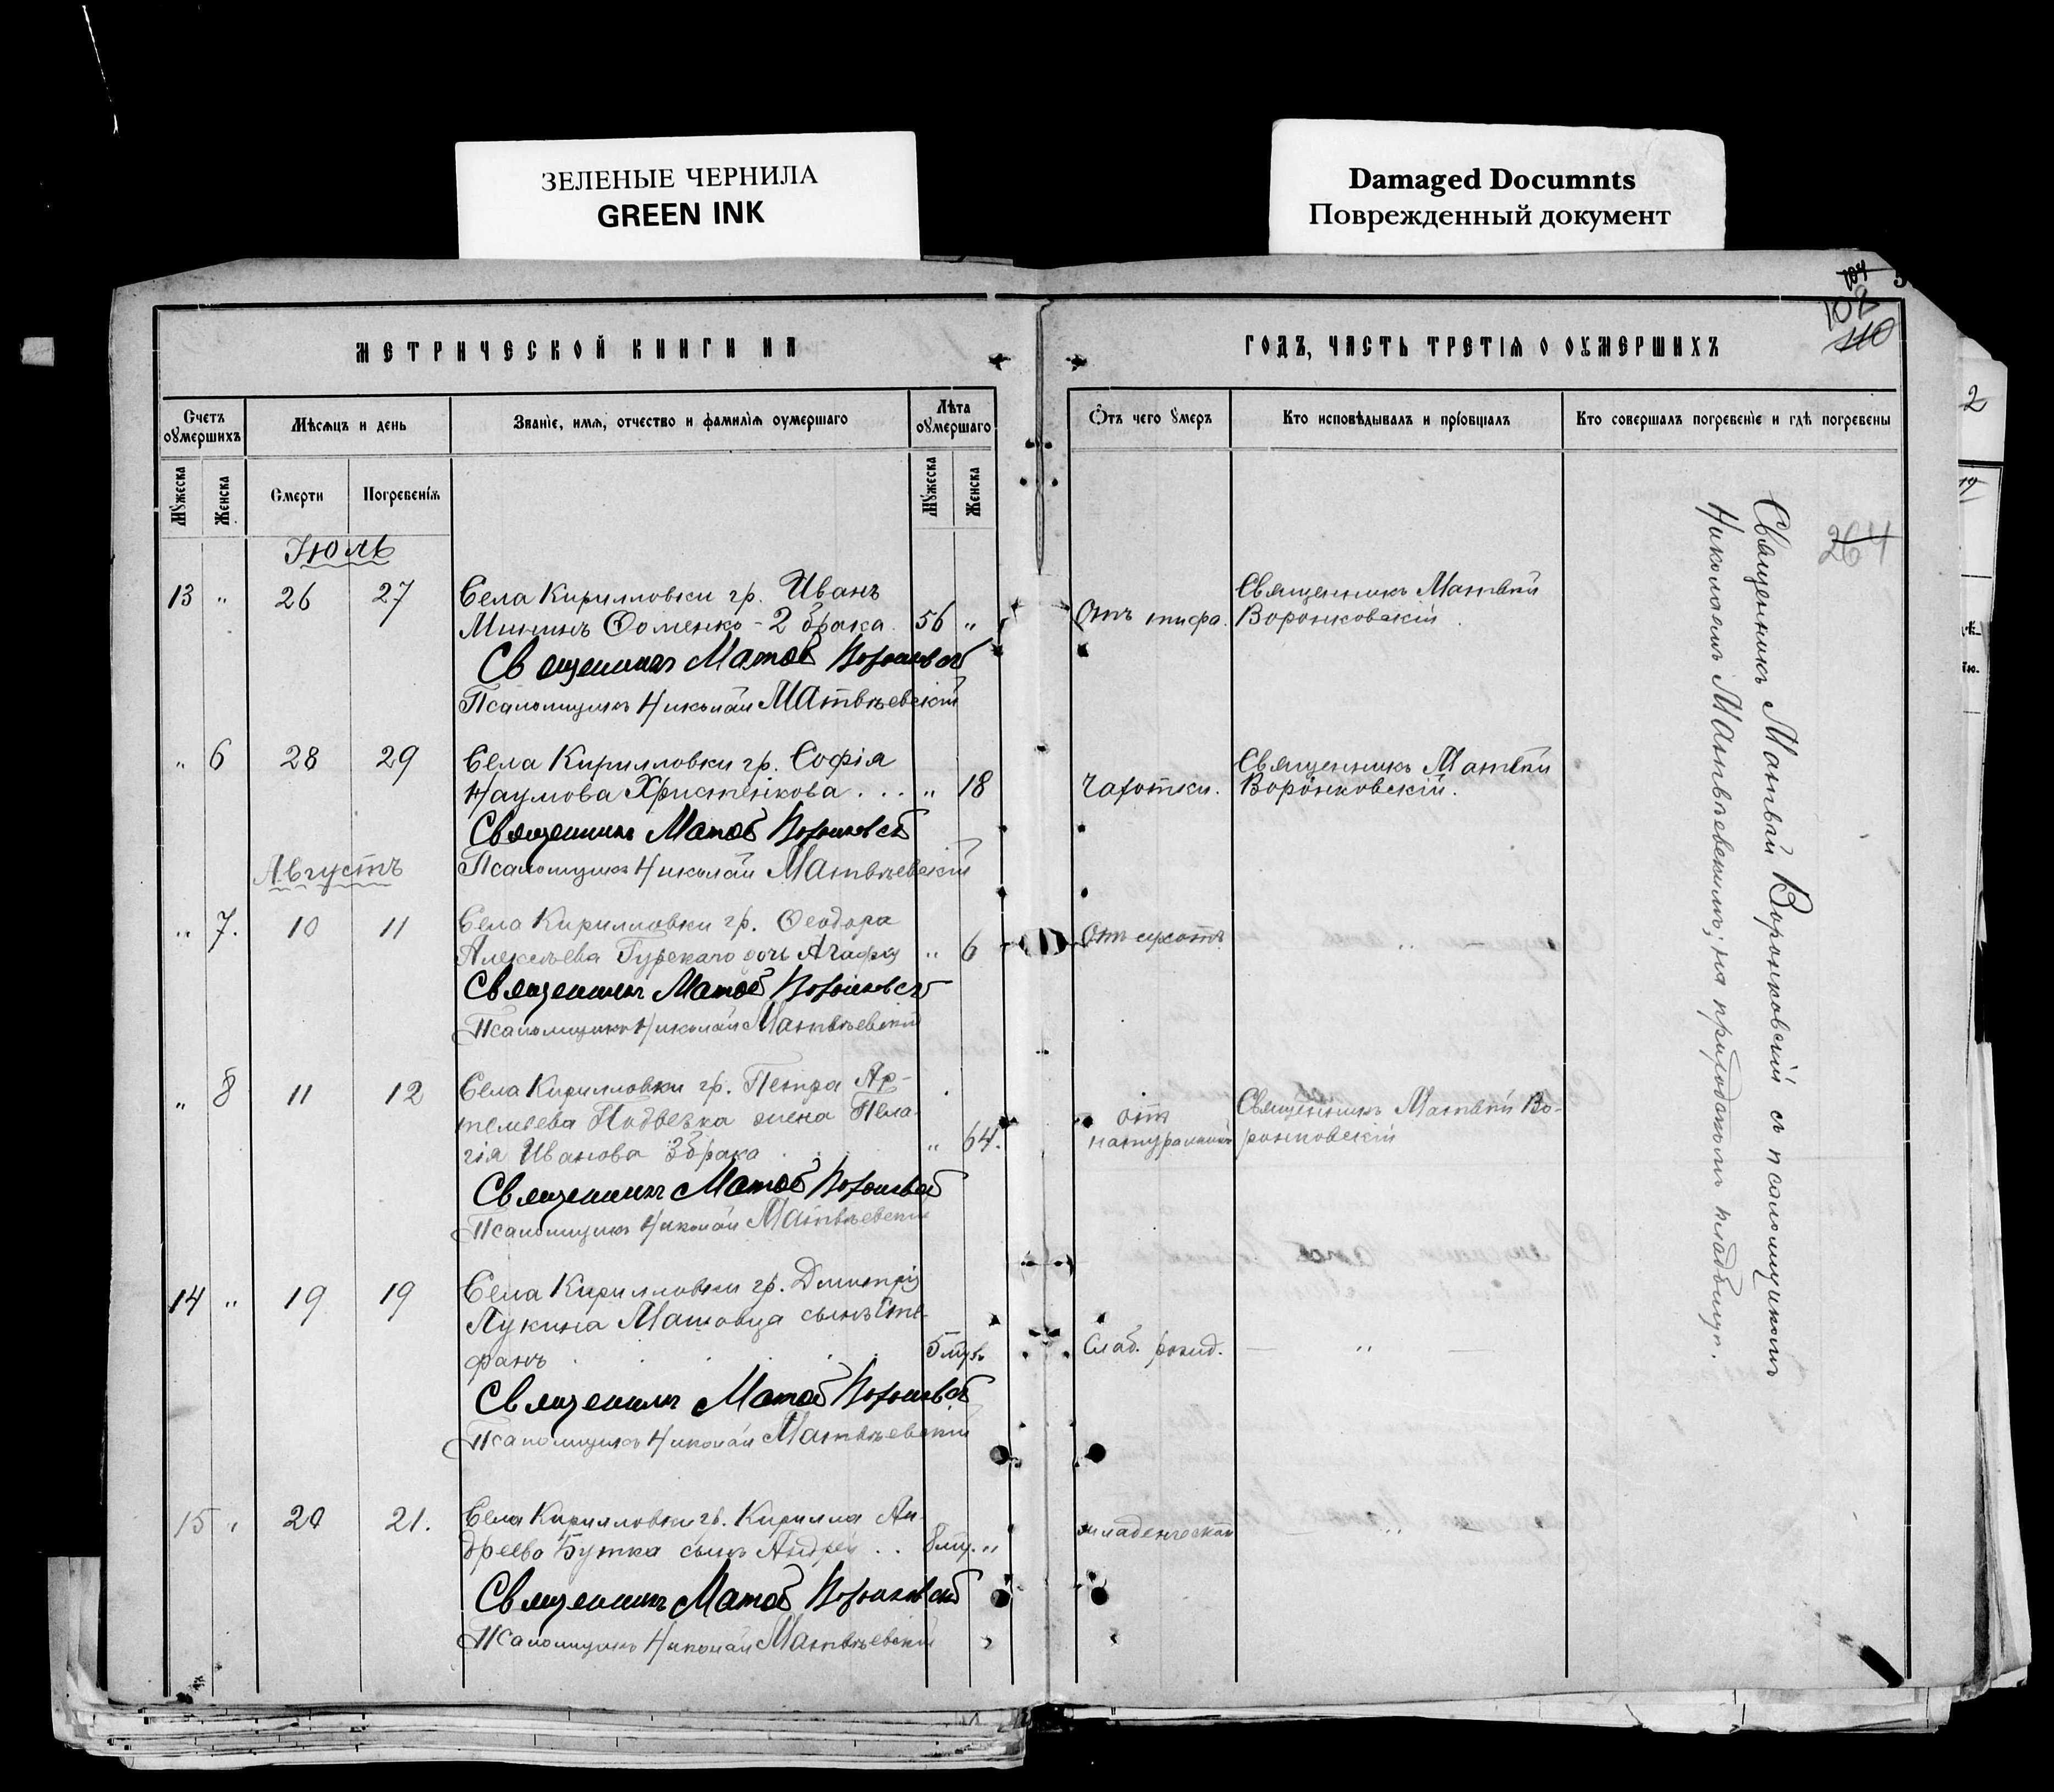 ЗЕЛЕНЫЕ ЧЕРНИЛА
GREEN INK
Damaged Documnts
Поврежденный документ
МЕТРИЧЕСКОЙ КНИГИ НА
ГОДЪ, ЧАСТЬ ТРЕТІЯ О ОУМЕРШИХЪ
102
110
Счетъ оумершихъ
Мѣсяцъ и день
Званіе, имя, отчество и фамилія оумершаго
Лѣта оумершаго
Ѿтъ чего ѹмеръ
Кто исповѣдывалъ и пріобщалъ
Кто совершалъ погребеніе и гдѣ погребены
Мѹжеска
Женска
Смерти
Погребенія
Мѹжеска
Женска
264
Іюль
13 " 26 27 Села Кирилловки гр. Иванъ
Мининъ Фоменко - 2 брака 56 " Отъ тифа. Священникъ Матвѣй Воронковскій
Священникъ Матвѣй Воронковскій
Псаломщикъ Николай Матвѣевскій
" 6 28 29 Села Кирилловки гр. Софія
Наумова Христенкова . . . " 18 Чахотки. Священникъ Матвѣй Воронковскій.
Священникъ Матвѣй Воронковскій
Псаломщикъ Николай Матвѣевскій
Августъ
" 7. 10 11 Села Кирилловки гр. Ѳеодора
Алексѣева Гурскаго дочь Агафія " 6 Отъ сухотъ — " —
Священникъ Матвѣй Воронковскій
Псаломщикъ Николай Матвѣевскій
" 8 11 12 Села Кирилловки гр. Петра Ар-
темьева жена Пела-
гія Иванова 3 брака " 64. отъ натуральной Священникъ Матвѣй Во-
ронковскій
Священникъ Матвѣй Воронковскій
Псаломщикъ Николай Матвѣевскій
14 " 19 19 Села Кирилловки гр. Димитрія
Лукина сынъ Сте-
фанъ 5 Слаб. рожд. — " —
Священникъ Матвѣй Воронковскій
Псаломщикъ Николай Матвѣевскій
15 " 20 21. Села Кирилловки гр. Кирилла Ан-
дреева Бутка сынъ Андрей . . 8 " младенческой "
Священникъ Матвѣй Воронковскій
Псаломщикъ Николай Матвѣевскій
Священникъ Матвѣй Воронковскій съ псаломщикомъ
Николаемъ Матвѣевскимъ; на приходскомъ кладбищѣ.
2